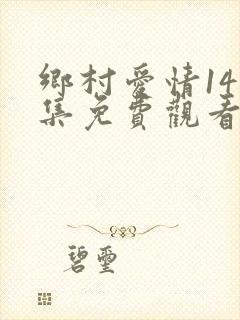 鄉村愛情14
集免費觀看
碧璽